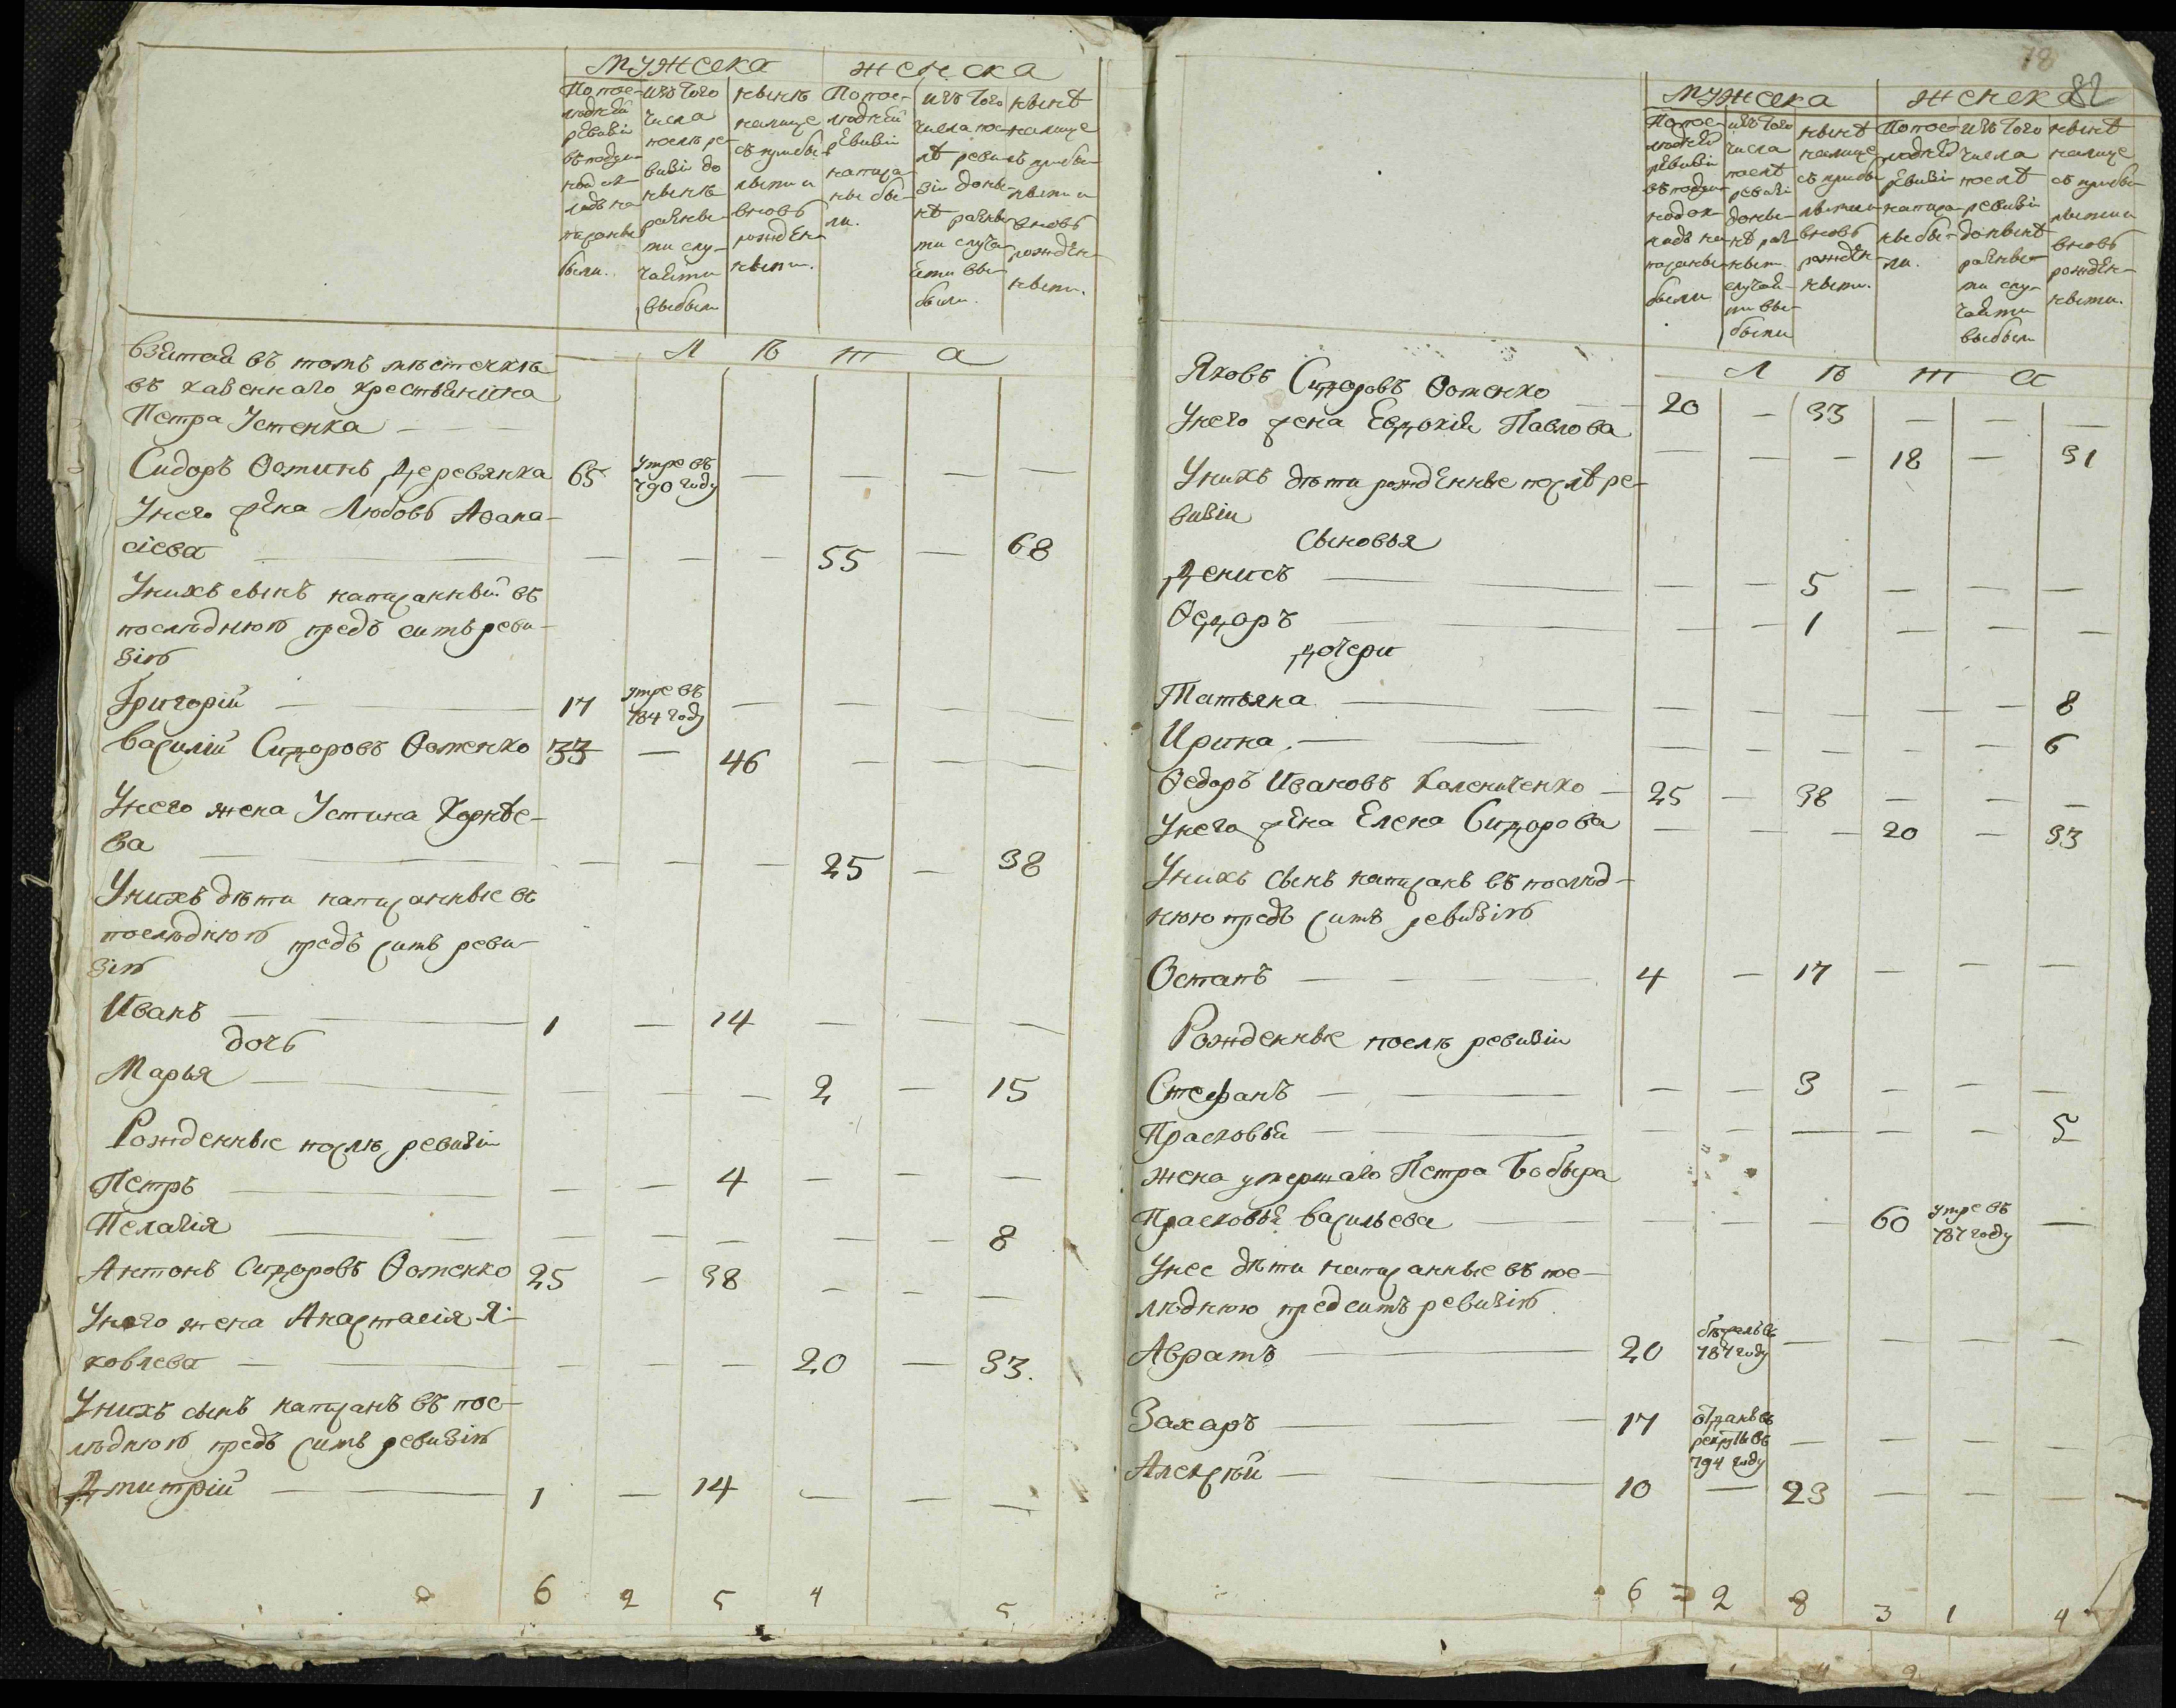 мужеска женска
По пос-
ледней
ревизіи
въ подуш-
ной ок-
ладъ на
писанные
были.
изъ того
числа
послѣ ре-
визіи до
нынѣ
разны-
ми слу-
чаями
выбыли
нынѣ
налице
съ прибы-
лыми и
вновь
рожден-
ными.
По пос-
ледней
ревизіи
написа-
ны бы-
ли.
изъ того
числа пос-
лѣ реви-
зіи доны-
нѣ разны-
ми случа-
ями вы-
были.
нынѣ
налице
съ прибы-
лыми и
вновь
рожден-
ными.
Л ѣ т а
взятой въ томъ мѣстечкѣ
въ казеннаго крестьянина
Петра Устенка
Сидоръ Ѳоминъ Деревянка 65 умре въ 790 году — — — —
У него жена Любовь Аѳана-
сіева — — — 55 — 68
У нихъ сынъ написанный въ
последнюю предъ симъ реви-
зію
Григорій 17 умре въ 784 году — — — —
Василій Сидоровъ Ѳоменко 33 — 46 — — —
У него жена Устина Корнѣе-
ва — — — 25 — 38
У нихъ дѣти написанные въ
последнюю предъ симъ реви-
зію
Иванъ 1 — 14 — — —
дочь
Марья — — — 2 — 15
Рожденные послѣ ревизіи
Петръ — — 4 — — —
Пелагія — — — — — 8
Антонъ Сидоровъ Ѳоменко 25 — 38 — — —
У него жена Анастасія Я-
ковлева — — — 20 — 33.
У нихъ сынъ написанъ въ пос-
лѣднюю предъ симъ ревизію
Дмитрій 1 — 14 — — —
6 2 5 4 5
18
82
мужеска женска
По пос-
ледней
ревизіи
въ подуш-
ной ок-
ладъ на
писанны
были
изъ того
числа
послѣ
ревизіи
доны-
нѣ раз-
ными
случая-
ми вы-
были
нынѣ
налице
съ прибы-
лыми и
вновь
рожден-
ными.
По пос-
ледней
ревизіи
написа-
ны бы-
ли.
изъ того
числа
послѣ
ревизіи
до нынѣ
разны-
ми слу-
чаями
выбыли
нынѣ
налице
съ прибы-
лыми и
вновь
рожден-
ными.
Л ѣ т а
Яковъ Сидоровъ Ѳоменко 20 — 33 — — —
У него жена Евдокія Павлова — — — 18 — 31
У нихъ дѣти рожденные послѣ ре-
визіи
Сыновья
Денисъ — — 5 — — —
Ѳедоръ — — 1 — — —
дочери
Татьяна — — — — — 8
Ирина — — — — — 6
Ѳедоръ Ивановъ Калениченко 25 — 38 — — —
У него жена Елена Сидорова — — — 20 — 33
У нихъ сынъ написанъ въ послѣд-
нюю предъ симъ ревизію
Остапъ 4 — 17 — — —
Рожденные послѣ ревизіи
Стефанъ — — 3 — — —
Прасковья — — — — — 5
жена умершаго Петра Бобыра
Прасковья Васильева — — — 60 умре въ 787 году —
У нее дѣти написанные въ пос-
лѣднюю предъ симъ ревизію
Аврамъ 20 787 году — — — —
Захаръ 17 отданъ въ рекруты въ 794 году — — — —
Алексѣй 10 — 23 — — —
6 2 8 3 1 4